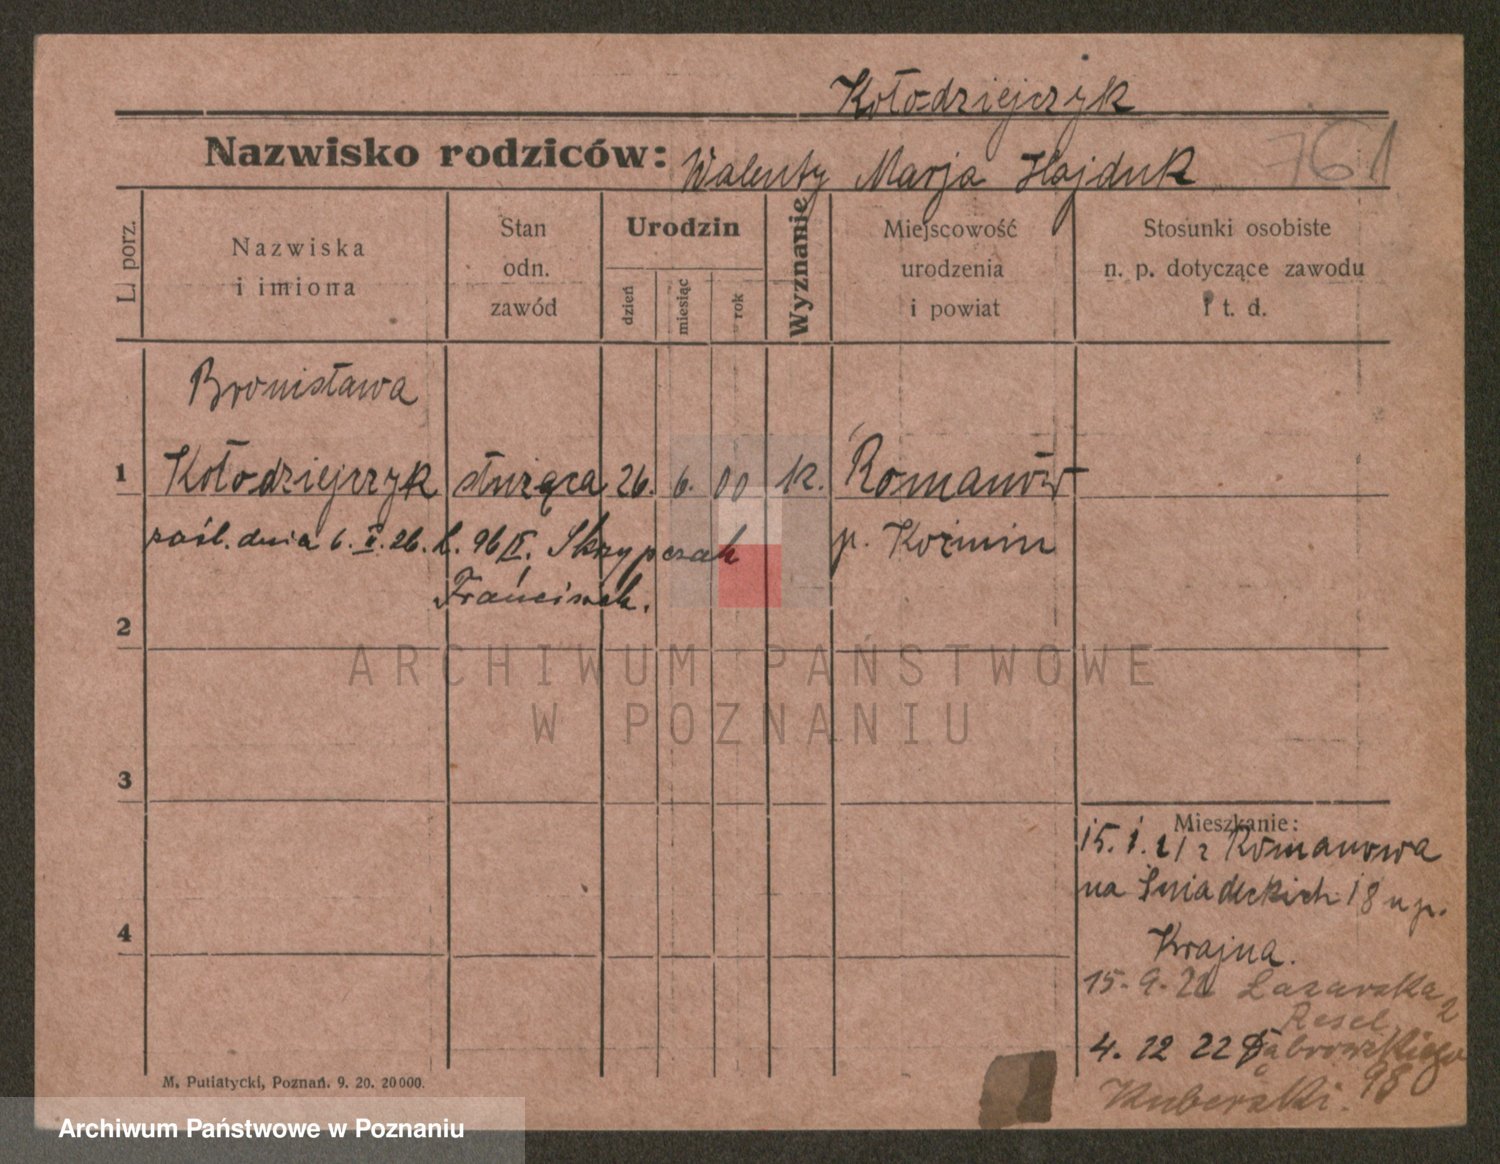 Kołodziejczyk
Nazwisko rodziców: Walenty Marja Hajduk 761
L. porz.
Nazwiska
i imiona
Stan
odn.
zawód
Urodzin
dzień
miesiąc
rok
Wyznanie
Miejscowość
urodzenia
i powiat
Stosunki osobiste
n. p. dotyczące zawodu
i t. d.
Bronisława
1 Kołodziejczyk służąca 26. 6. 00 k. Romanów
zaśl. dnia 6. II. 26. k. 96 II. Skrzypczak p. Koźmin
Franciszek.
2
ARCHIWUM PAŃSTWOWE
W POZNANIU
3
4
Mieszkanie:
15. 1. 21 z Romanowa
na Śniadeckich 18 u p.
Krajna.
15-9-22 Łazarska 2
Resel
4. 12 22 Dąbrowskiego
98
Kuberski.
M. Putiatycki, Poznań. 9. 20. 20000.
Archiwum Państwowe w Poznaniu